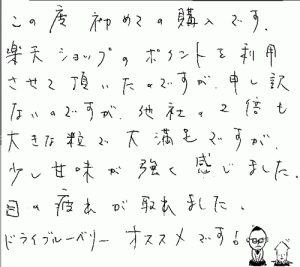 この度初めての購入です。
楽天ショップのポイントを利用
させて頂いたのですが、申し訳
ないのですが、他社の2倍も
大きな粒で大満足ですが、
少し甘味が強く感じました。
目の疲れが取れました。
ドライブルーベリー オススメです!